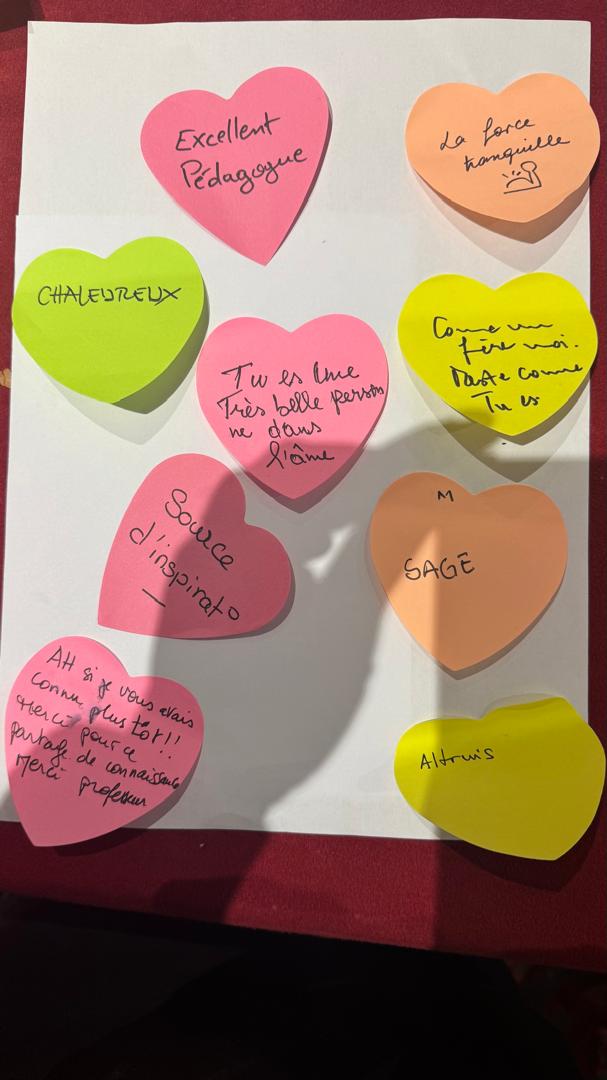 Excellent
Pédagogue
La force
tranquille
CHALEUREUX
Tu es Une
Très belle person
ne dans
l'âme
Comme un
frère moi.
Reste comme
Tu es
Source
d'inspirato
M
SAGE
AH si je vous avais
connu plus tôt!!
Merci pour ce
partage de connaissance
Merci professeur
Altruis